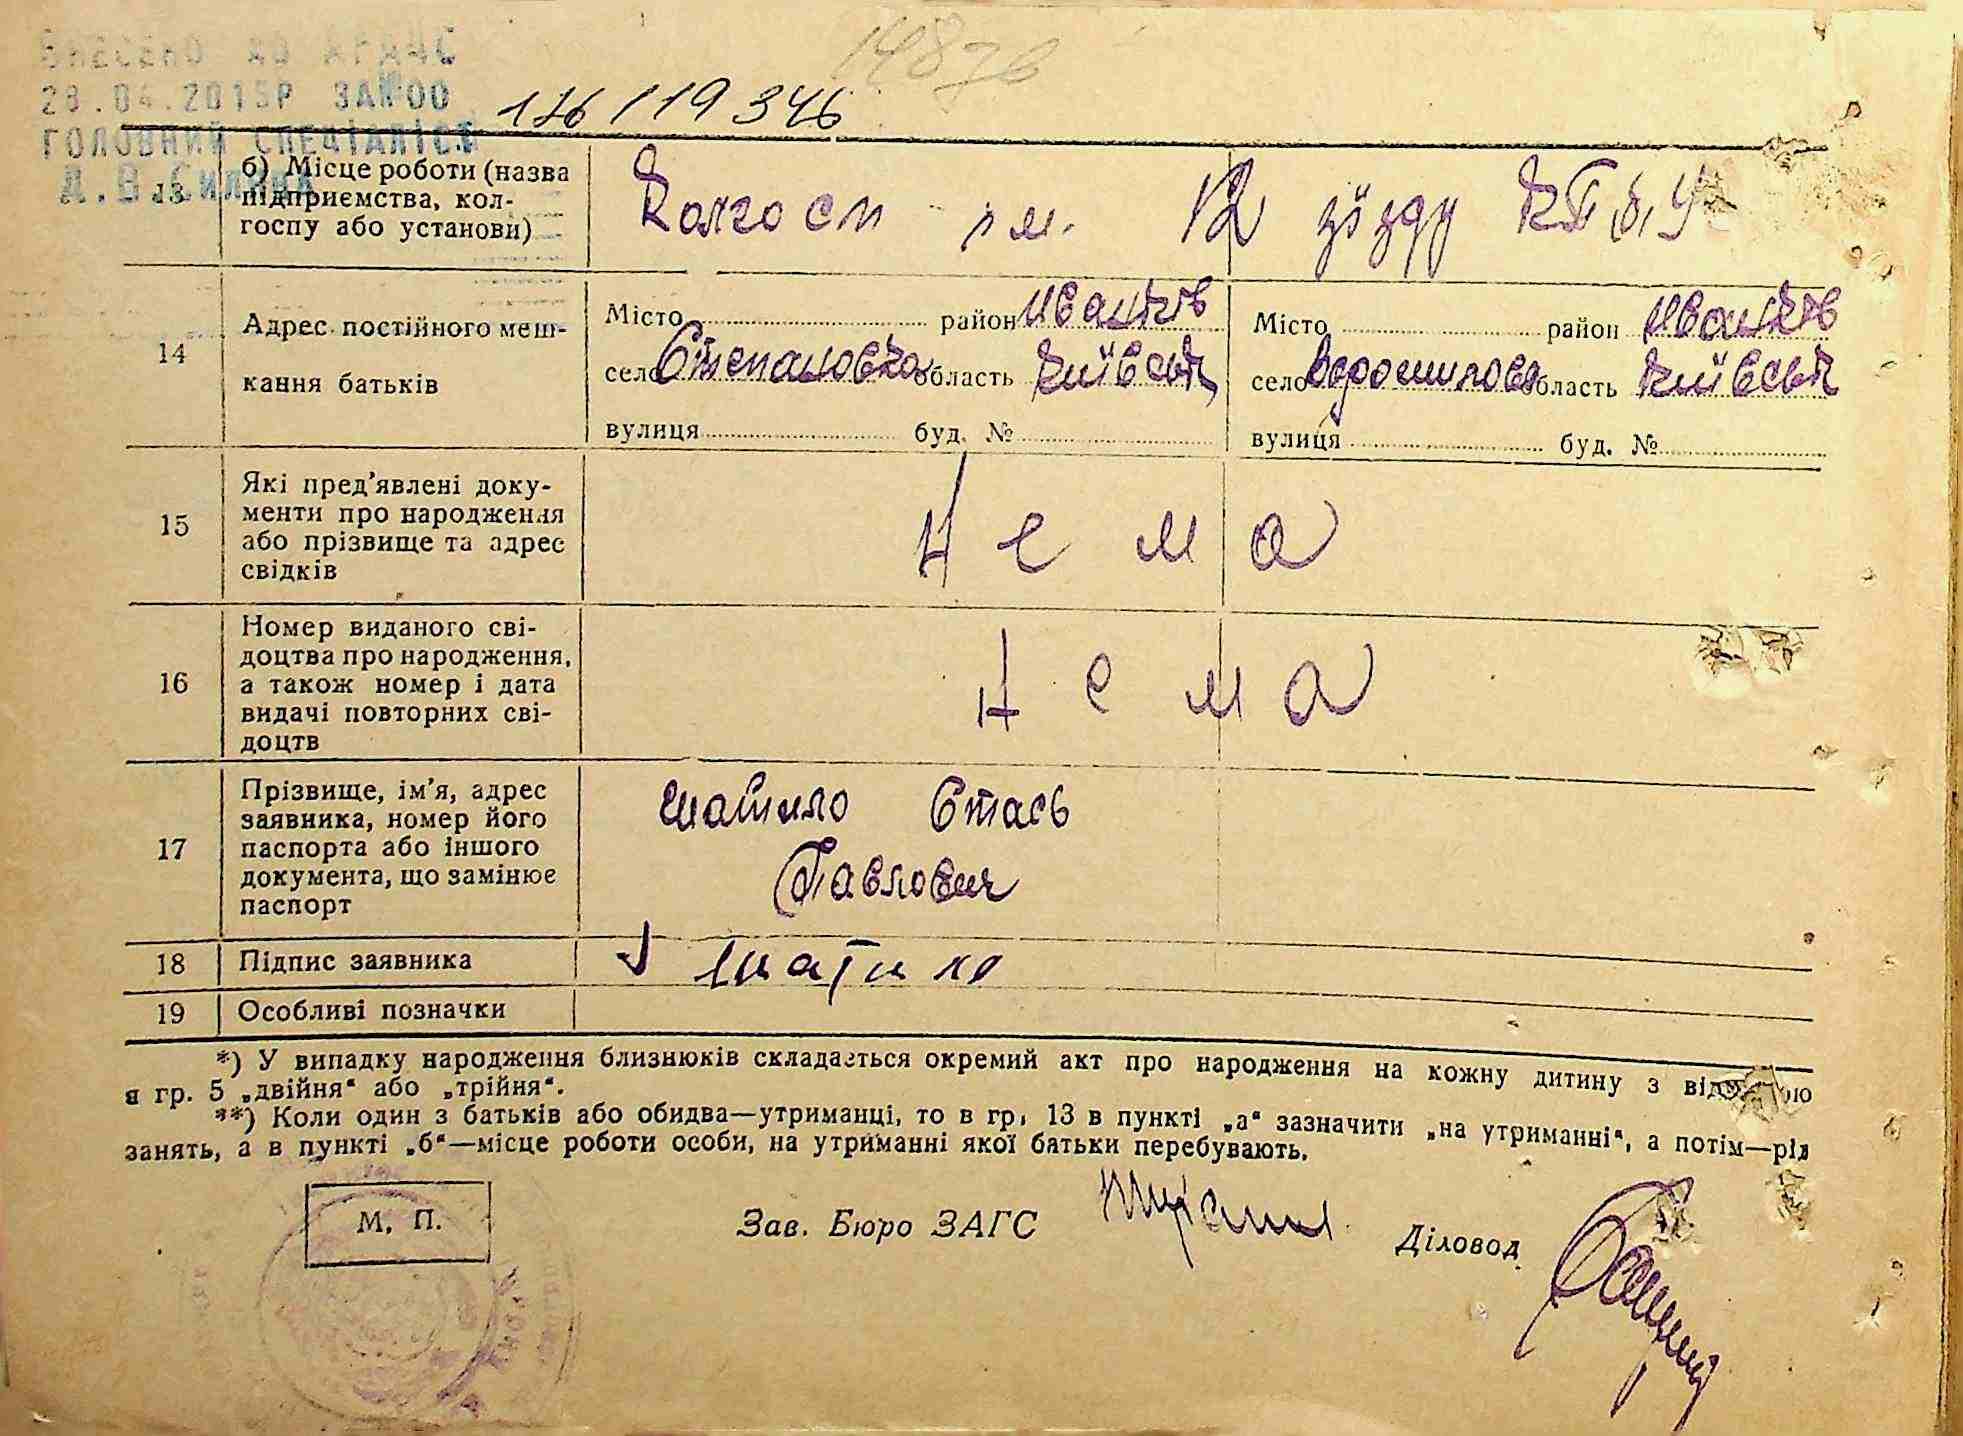 ВНЕСЕНО ДО ДРАЦС
28.04.2015Р ЗА №00
ГОЛОВНИЙ СПЕЦІАЛІСТ
Д.В.
1487в
176/119346
13 б) Місце роботи (назва
підприємства, кол-
госпу або установи)
Колгосп ім. 12 зїзду КПбУ
14
Адрес постійного меш-
кання батьків
Місто район Іванків
село Степановка область Київськ
вулиця буд. №
Місто район Іванків
село Ворошилове область Київськ
вулиця буд. №
15
Які пред'явлені доку-
менти про народження
або прізвище та адрес
свідків
Нема
16
Номер виданого сві-
доцтва про народження,
а також номер і дата
видачі повторних сві-
доцтв
Нема
17
Прізвище, ім'я, адрес
заявника, номер його
паспорта або іншого
документа, що замінює
паспорт
Шатило Стась
Павлович
18 Підпис заявника
Шатило
19 Особливі позначки
*) У випадку народження близнюків складається окремий акт про народження на кожну дитину з
в гр. 5 „двійня“ або „трійня“.
**) Коли один з батьків або обидва—утриманці, то в гр. 13 в пункті „а“ зазначити „на утриманні“, а потім—рід
занять, а в пункті „б“—місце роботи особи, на утриманні якої батьки перебувають.
М. П.
Зав. Бюро ЗАГС
Діловод